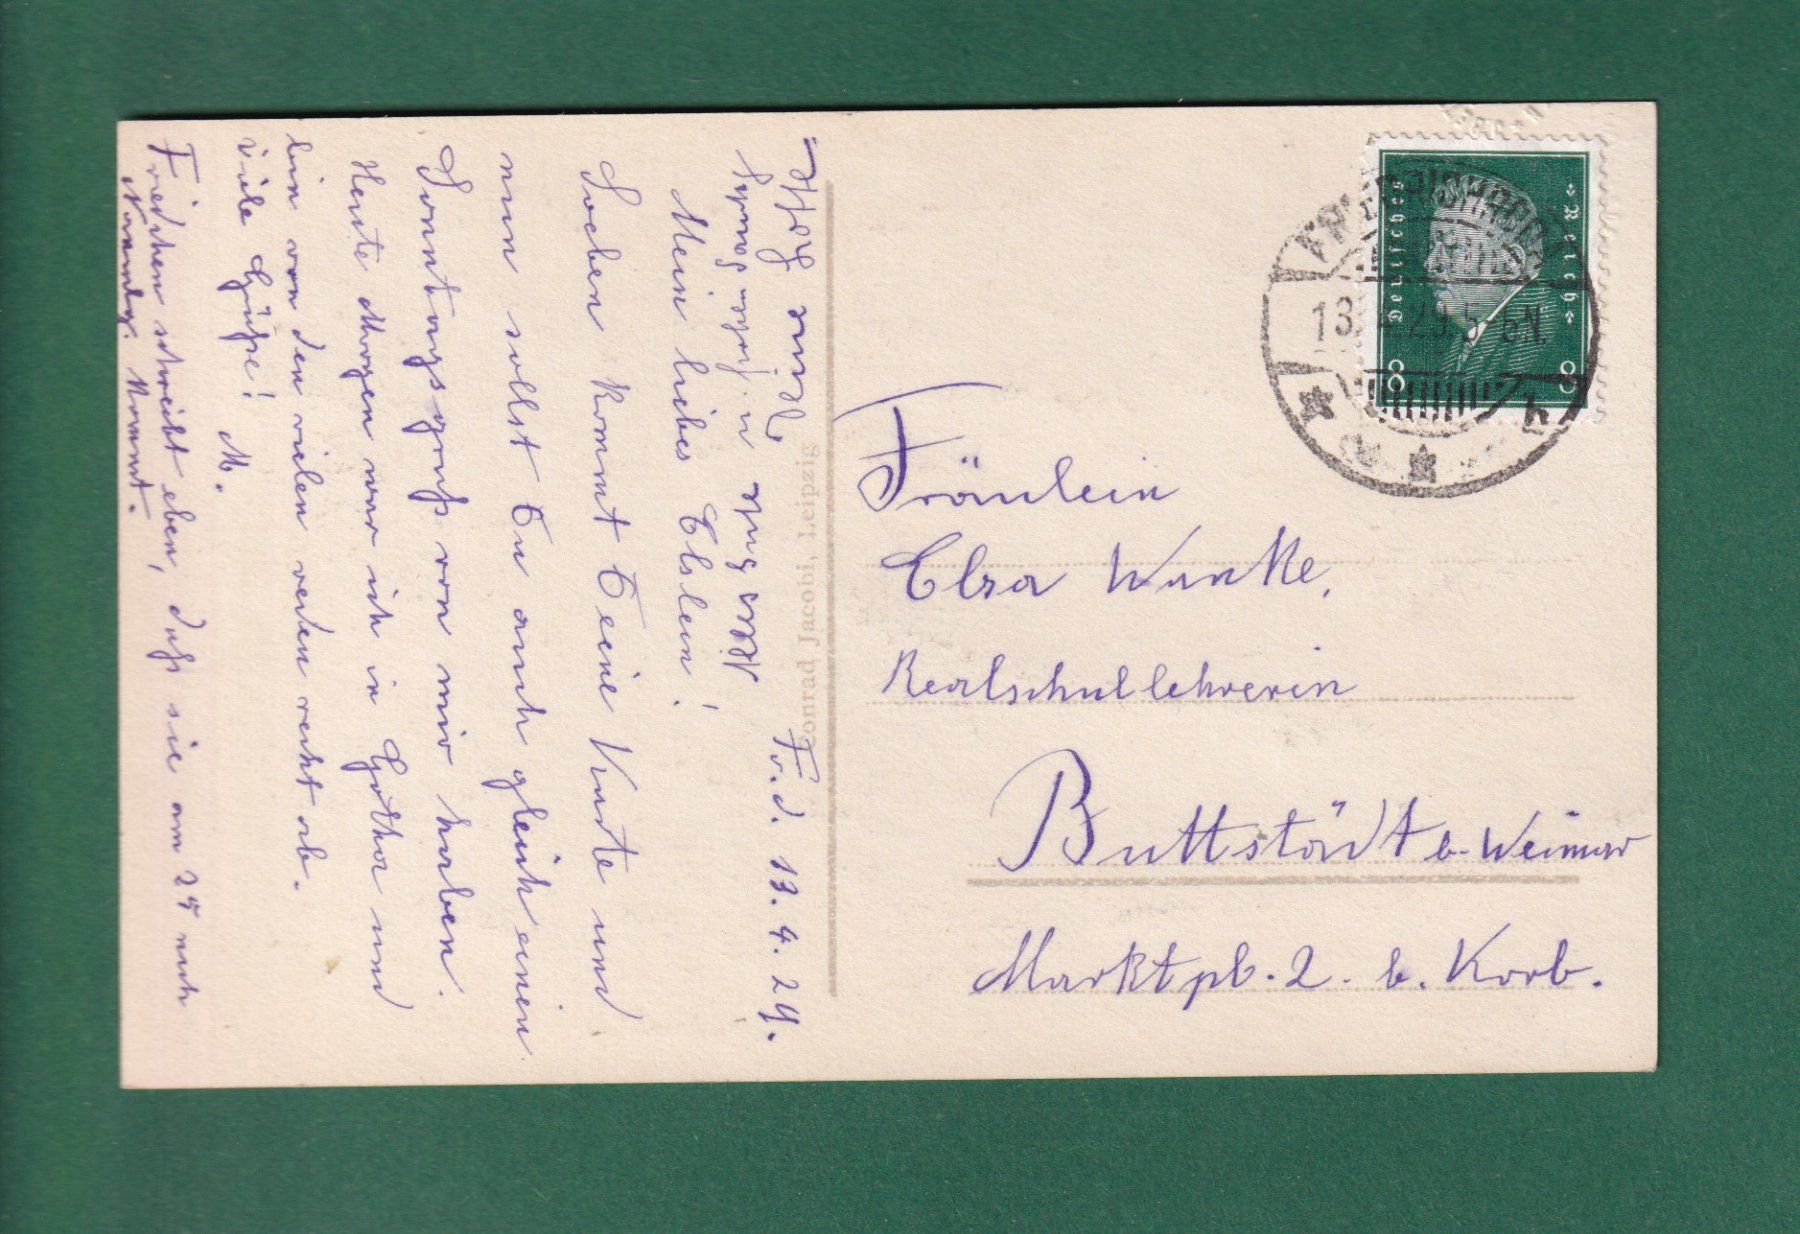 Fr.d. 13.4.29.
Mein liebes Elslein!
Soeben kommt Deine Karte und
nun sollst Du auch gleich einen
Sonntagsgruß von mir haben.
Heute Morgen war ich in Gotha und
bin von den vielen reden recht ab.
Viele Grüße! M.
Friedchen schreibt eben, daß sie am 24 nach
Naumbg. kommt.
Deine Lotte
Fräulein
Elsa Wunke,
Realschullehrerin
Buttstädt b. Weimar
Marktpl. 2. b. Korb.
Conrad Jacobi, Leipzig
Deutsches Reich
8 8
13.4.29.5-6N.